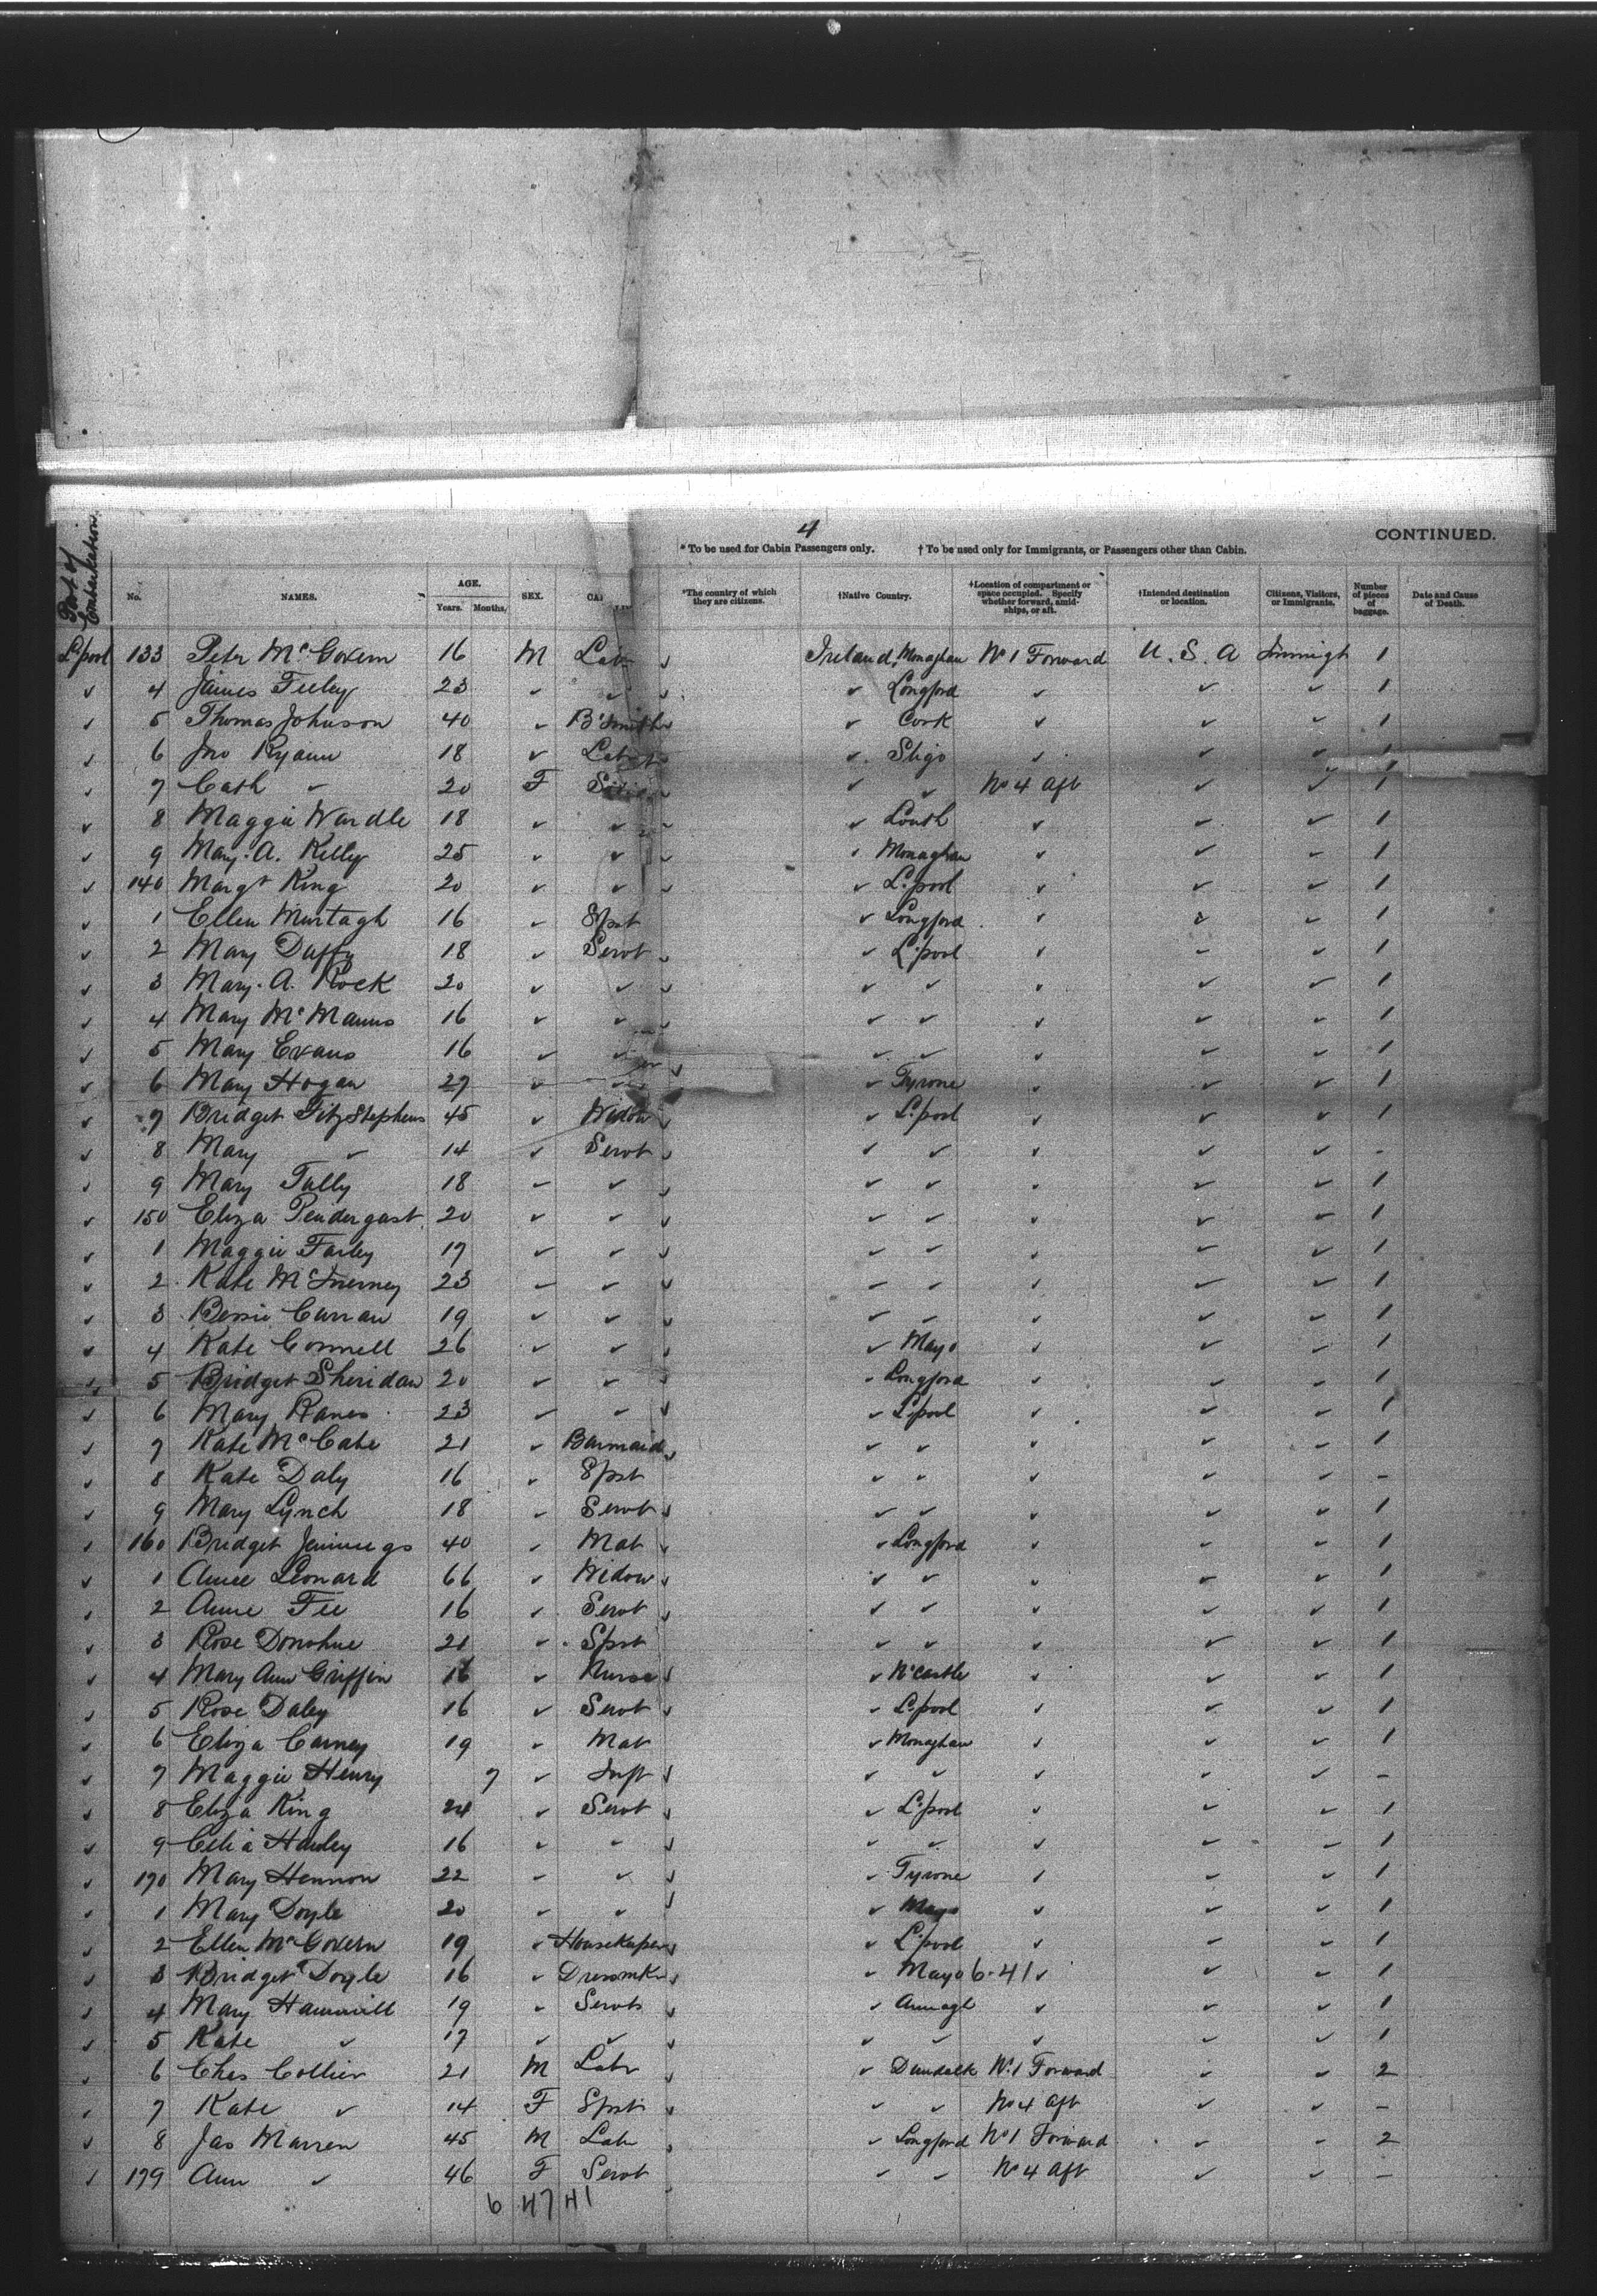 4
CONTINUED.
* To be used for Cabin Passengers only. † To be used only for Immigrants, or Passengers other than Cabin.
Port of Embarkation. No. NAMES. AGE. Years. Months. SEX. *The country of which they are citizens. †Native Country. †Location of compartment or space occupied. Specify whether forward, amidships, or aft. †Intended destination or location. Citizens, Visitors, or Immigrants. Number of pieces of baggage. Date and Cause of Death.
L'pool 133 Peter McGovern 16 M Labr Ireland, Monaghan No 1 Forward U. S. A Immigt 1
✓ 4 James Feeley 23 ✓ ✓ ✓ Longford ✓ ✓ ✓ 1
✓ 5 Thomas Johnson 40 ✓ B'Smith ✓ Cork ✓ ✓ ✓ 1
✓ 6 Jno Ryann 18 ✓ Labr ✓ Sligo ✓ ✓ ✓ 1
✓ 7 Cath ✓ 20 F ✓ ✓ No 4 Aft ✓ ✓ 1
✓ 8 Maggie Wardle 18 ✓ ✓ ✓ Louth ✓ ✓ ✓ 1
✓ 9 Mary. A. Kelly 25 ✓ ✓ ✓ Monaghan ✓ ✓ ✓ 1
✓ 140 Margt King 20 ✓ ✓ ✓ L'pool ✓ ✓ ✓ 1
✓ 1 Ellen Murtagh 16 ✓ Spst ✓ Longford ✓ ✓ ✓ 1
✓ 2 Mary Duffy 18 ✓ Servt ✓ L'pool ✓ ✓ ✓ 1
✓ 3 Mary. A. Rock 20 ✓ ✓ ✓ ✓ ✓ ✓ ✓ 1
✓ 4 Mary McManus 16 ✓ ✓ ✓ ✓ ✓ ✓ ✓ 1
✓ 5 Mary Evans 16 ✓ ✓ ✓ ✓ ✓ ✓ ✓ 1
✓ 6 Mary Hogan 27 ✓ ✓ ✓ Tyrone ✓ ✓ ✓ 1
✓ 7 Bridget FitzStephens 45 ✓ Widow ✓ L'pool ✓ ✓ ✓ 1
✓ 8 Mary ✓ 14 ✓ Servt ✓ ✓ ✓ ✓ ✓ -
✓ 9 Mary Tully 18 ✓ ✓ ✓ ✓ ✓ ✓ ✓ 1
✓ 150 Eliza Pendergast 20 ✓ ✓ ✓ ✓ ✓ ✓ ✓ 1
✓ 1 Maggie Farley 17 ✓ ✓ ✓ ✓ ✓ ✓ ✓ 1
✓ 2 Kate McInerney 23 ✓ ✓ ✓ ✓ ✓ ✓ ✓ 1
✓ 3 Bessie Curran 19 ✓ ✓ ✓ ✓ ✓ ✓ ✓ 1
✓ 4 Kate Connell 26 ✓ ✓ ✓ Mayo ✓ ✓ ✓ 1
✓ 5 Bridget Sheridan 20 ✓ ✓ ✓ Longford ✓ ✓ ✓ 1
✓ 6 Mary Ranes 23 ✓ ✓ ✓ L'pool ✓ ✓ ✓ 1
✓ 7 Kate McCabe 21 ✓ Barmaid ✓ ✓ ✓ ✓ ✓ 1
✓ 8 Kate Daly 16 ✓ Spst ✓ ✓ ✓ ✓ ✓ -
✓ 9 Mary Lynch 18 ✓ Servt ✓ ✓ ✓ ✓ ✓ 1
✓ 160 Bridget Jennings 40 ✓ Mat ✓ Longford ✓ ✓ ✓ 1
✓ 1 Anne Leonard 66 ✓ Widow ✓ ✓ ✓ ✓ ✓ 1
✓ 2 Anne Fee 16 ✓ Servt ✓ ✓ ✓ ✓ ✓ 1
✓ 3 Rose Donohue 21 ✓ Spst ✓ ✓ ✓ ✓ ✓ 1
✓ 4 Mary Ann Griffin 16 ✓ Nurse ✓ N'castle ✓ ✓ ✓ 1
✓ 5 Rose Daley 16 ✓ Servt ✓ L'pool ✓ ✓ ✓ 1
✓ 6 Eliza Carney 19 ✓ Mat ✓ Monaghan ✓ ✓ ✓ 1
✓ 7 Maggie Henry 7 ✓ Inft ✓ ✓ ✓ ✓ ✓ -
✓ 8 Eliza King 24 ✓ Servt ✓ L'pool ✓ ✓ ✓ 1
✓ 9 Celia Hanley 16 ✓ ✓ ✓ ✓ ✓ ✓ ✓ 1
✓ 170 Mary Hennon 22 ✓ ✓ ✓ Tyrone ✓ ✓ ✓ 1
✓ 1 Mary Doyle 20 ✓ ✓ ✓ Mayo ✓ ✓ ✓ 1
✓ 2 Ellen McGovern 19 ✓ Housekeeper ✓ L'pool ✓ ✓ ✓ 1
✓ 3 Bridget Doyle 16 ✓ Dressmkr ✓ Mayo 6-41 ✓ ✓ ✓ 1
✓ 4 Mary Hammill 19 ✓ Servt ✓ Armagh ✓ ✓ ✓ 1
✓ 5 Kate ✓ 17 ✓ ✓ ✓ ✓ ✓ ✓ ✓ 1
✓ 6 Chas Collier 21 M Labr ✓ Dundalk No 1 Forward ✓ ✓ 2
✓ 7 Kate ✓ 14 F Spst ✓ ✓ No 4 Aft ✓ ✓ -
✓ 8 Jas Marren 45 M Labr ✓ Longford No 1 Forward ✓ ✓ 2
✓ 179 Ann ✓ 46 F Servt ✓ ✓ No 4 Aft ✓ ✓ -
6 47 41